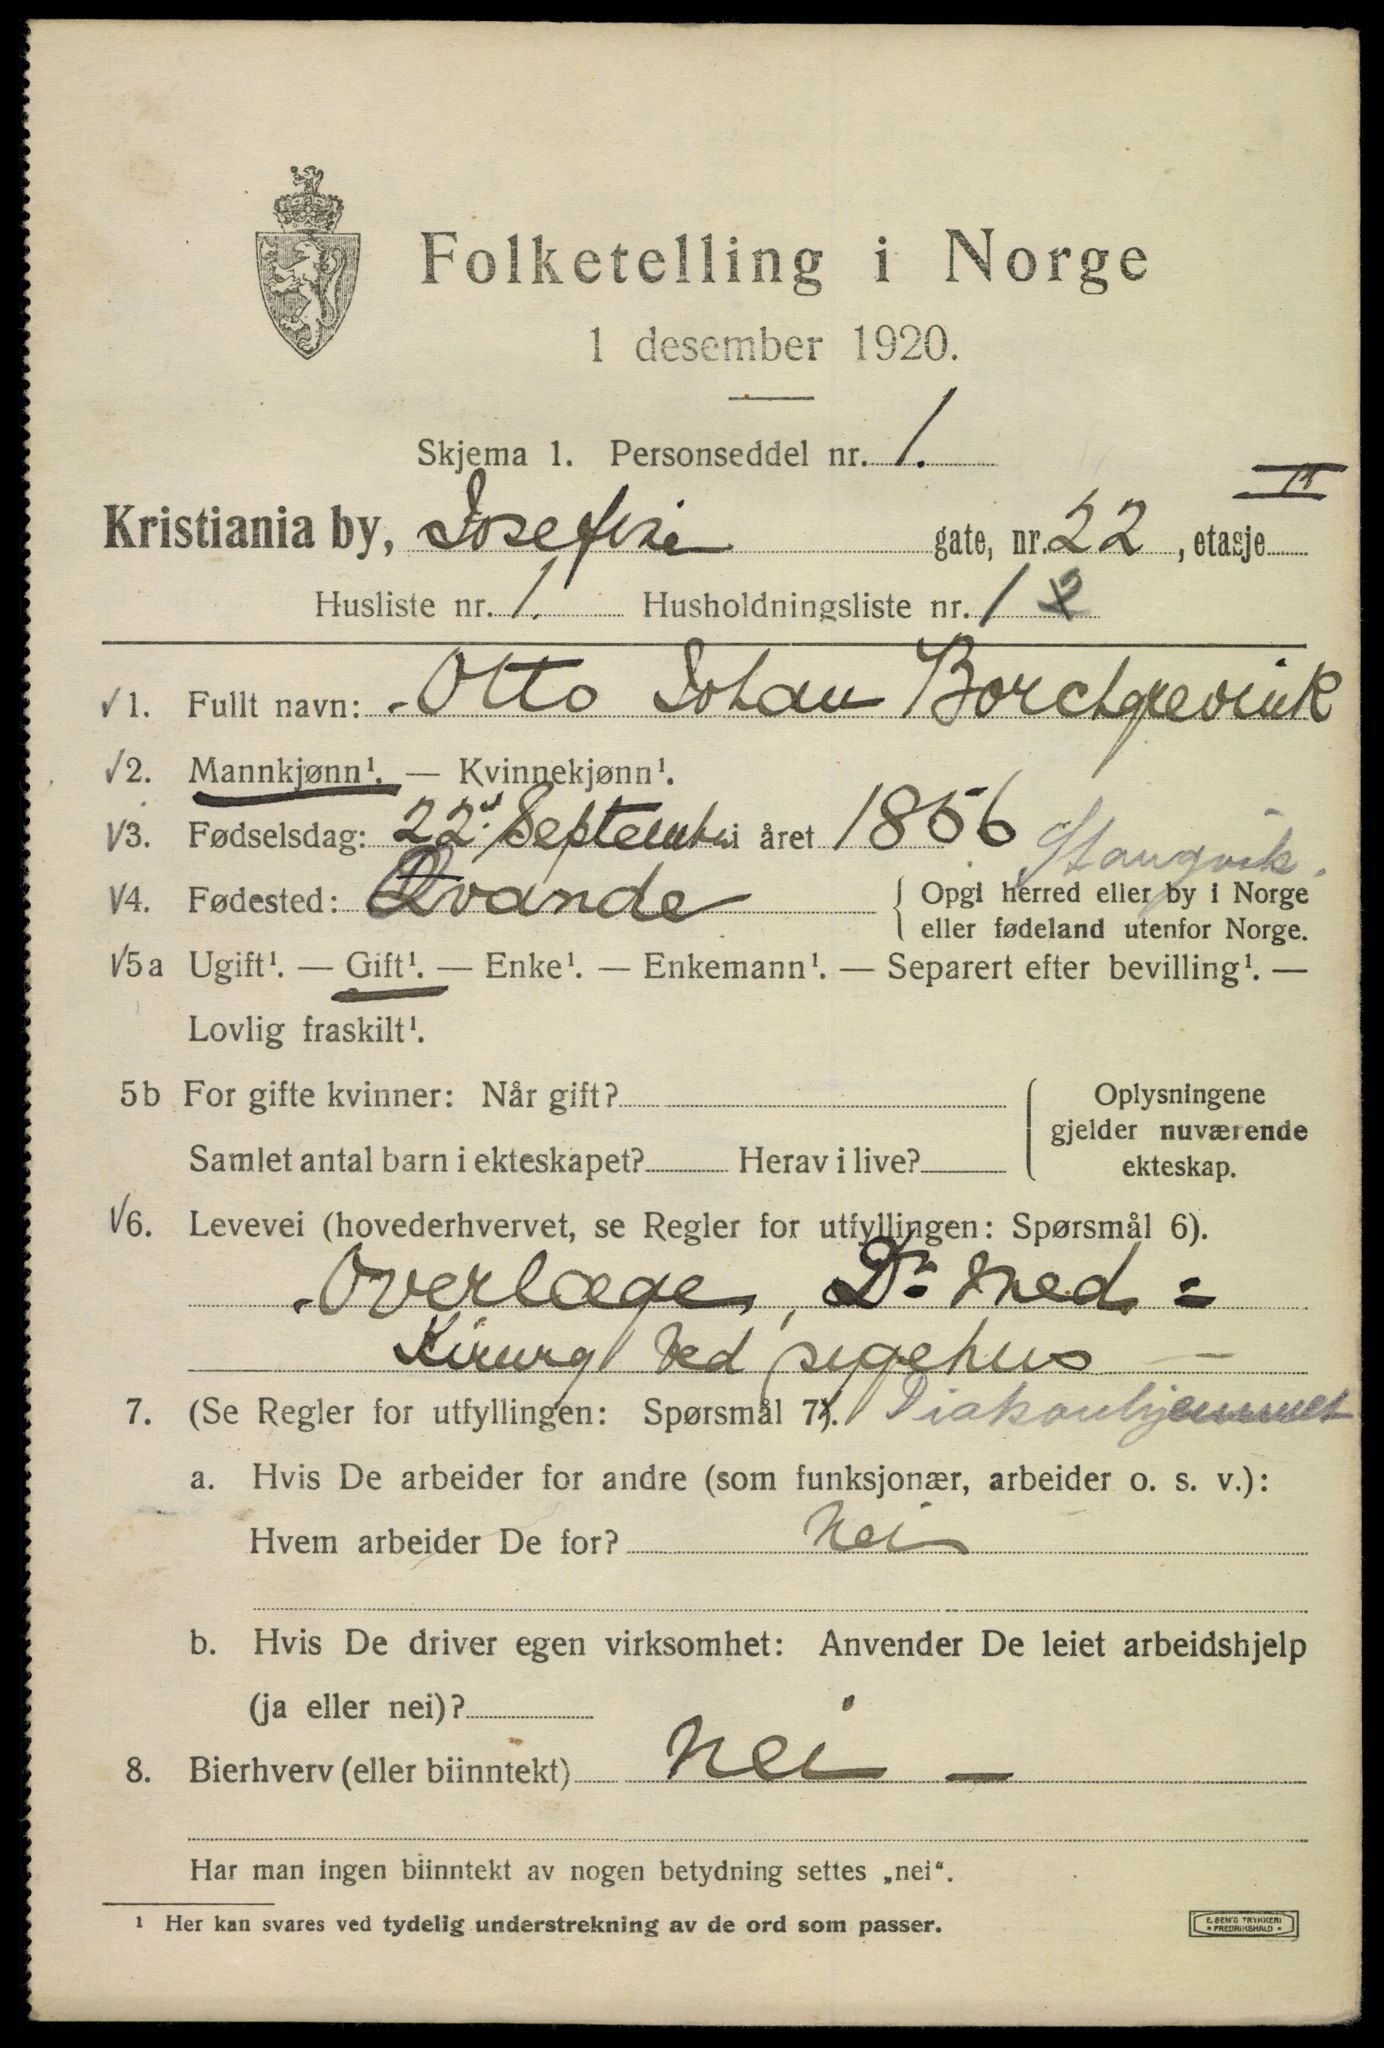 Folketelling i Norge
1 desember 1920.
Skjema 1. Personseddel nr. 1.
Kristiania by, Josefine gate, nr. 22, etasje II
Husliste nr. 1. Husholdningsliste nr. 1 2
√1. Fullt navn: Otto Johan Borchgrevink
√2. Mannkjønn¹. — Kvinnekjønn¹.
√3. Fødselsdag: 22d September i året 1856
Stangvik.
√4. Fødested: Qvande { Opgi herred eller by i Norge
eller fødeland utenfor Norge.
√5a Ugift¹. — Gift¹. — Enke¹. — Enkemann¹. — Separert efter bevilling¹. —
Lovlig fraskilt¹.
5b For gifte kvinner: Når gift? { Oplysningene
gjelder nuværende
Samlet antal barn i ekteskapet? Herav i live? ekteskap.
√6. Levevei (hovederhvervet, se Regler for utfyllingen: Spørsmål 6).
Overlæge, Dr. med =
Kirurg ved sygehus —
7. (Se Regler for utfyllingen: Spørsmål 7). Diakonhjemmet
a. Hvis De arbeider for andre (som funksjonær, arbeider o. s. v.):
Hvem arbeider De for? Nei
b. Hvis De driver egen virksomhet: Anvender De leiet arbeidshjelp
(ja eller nei)?
8. Bierhverv (eller biinntekt) Nei —
Har man ingen biinntekt av nogen betydning settes „nei“.
¹ Her kan svares ved tydelig understrekning av de ord som passer.
E. SEM'S TRYKKERI
• FREDRIKSHALD •